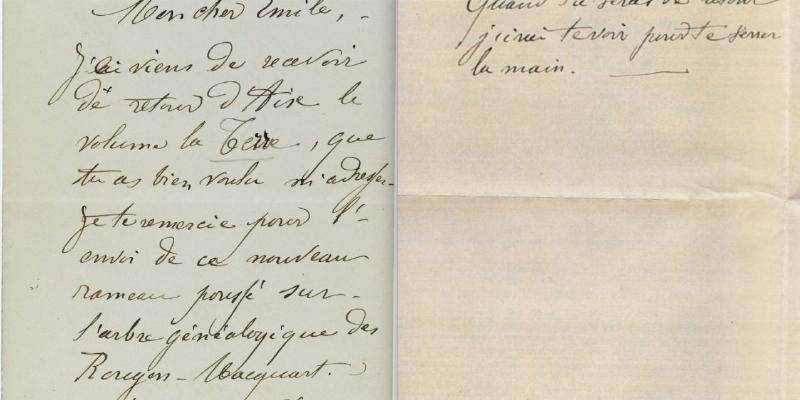 Mon cher Emile, -
Je viens de recevoir
de retour d'Aix le
volume la Terre, que
tu as bien voulu m'adresser-
Je te remercie pour l'-
envoi de ce nouveau
rameau poussé sur -
l'arbre généalogique des
Rougon-Macquart.
Quand tu seras de retour
j'irai te voir pour te serrer
la main. —